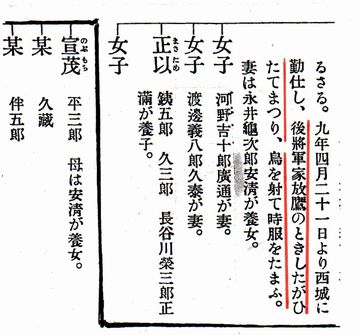 るさる。九年四月二十一日より西城に
勤仕し、後將軍家放鷹のときしたがひ
たてまつり、鳥を射て時服をたまふ。
妻は永井龜次郎安清が養女。
女子 河野吉十郎廣通が妻。
女子 渡邊義八郎久泰が妻。
正以 まさため 銕五郎 久三郎 長谷川榮三郎正
滿が養子。
女子
宣茂 のぶもち 平三郎 母は安清が養女。
某 久藏
某 伴五郎